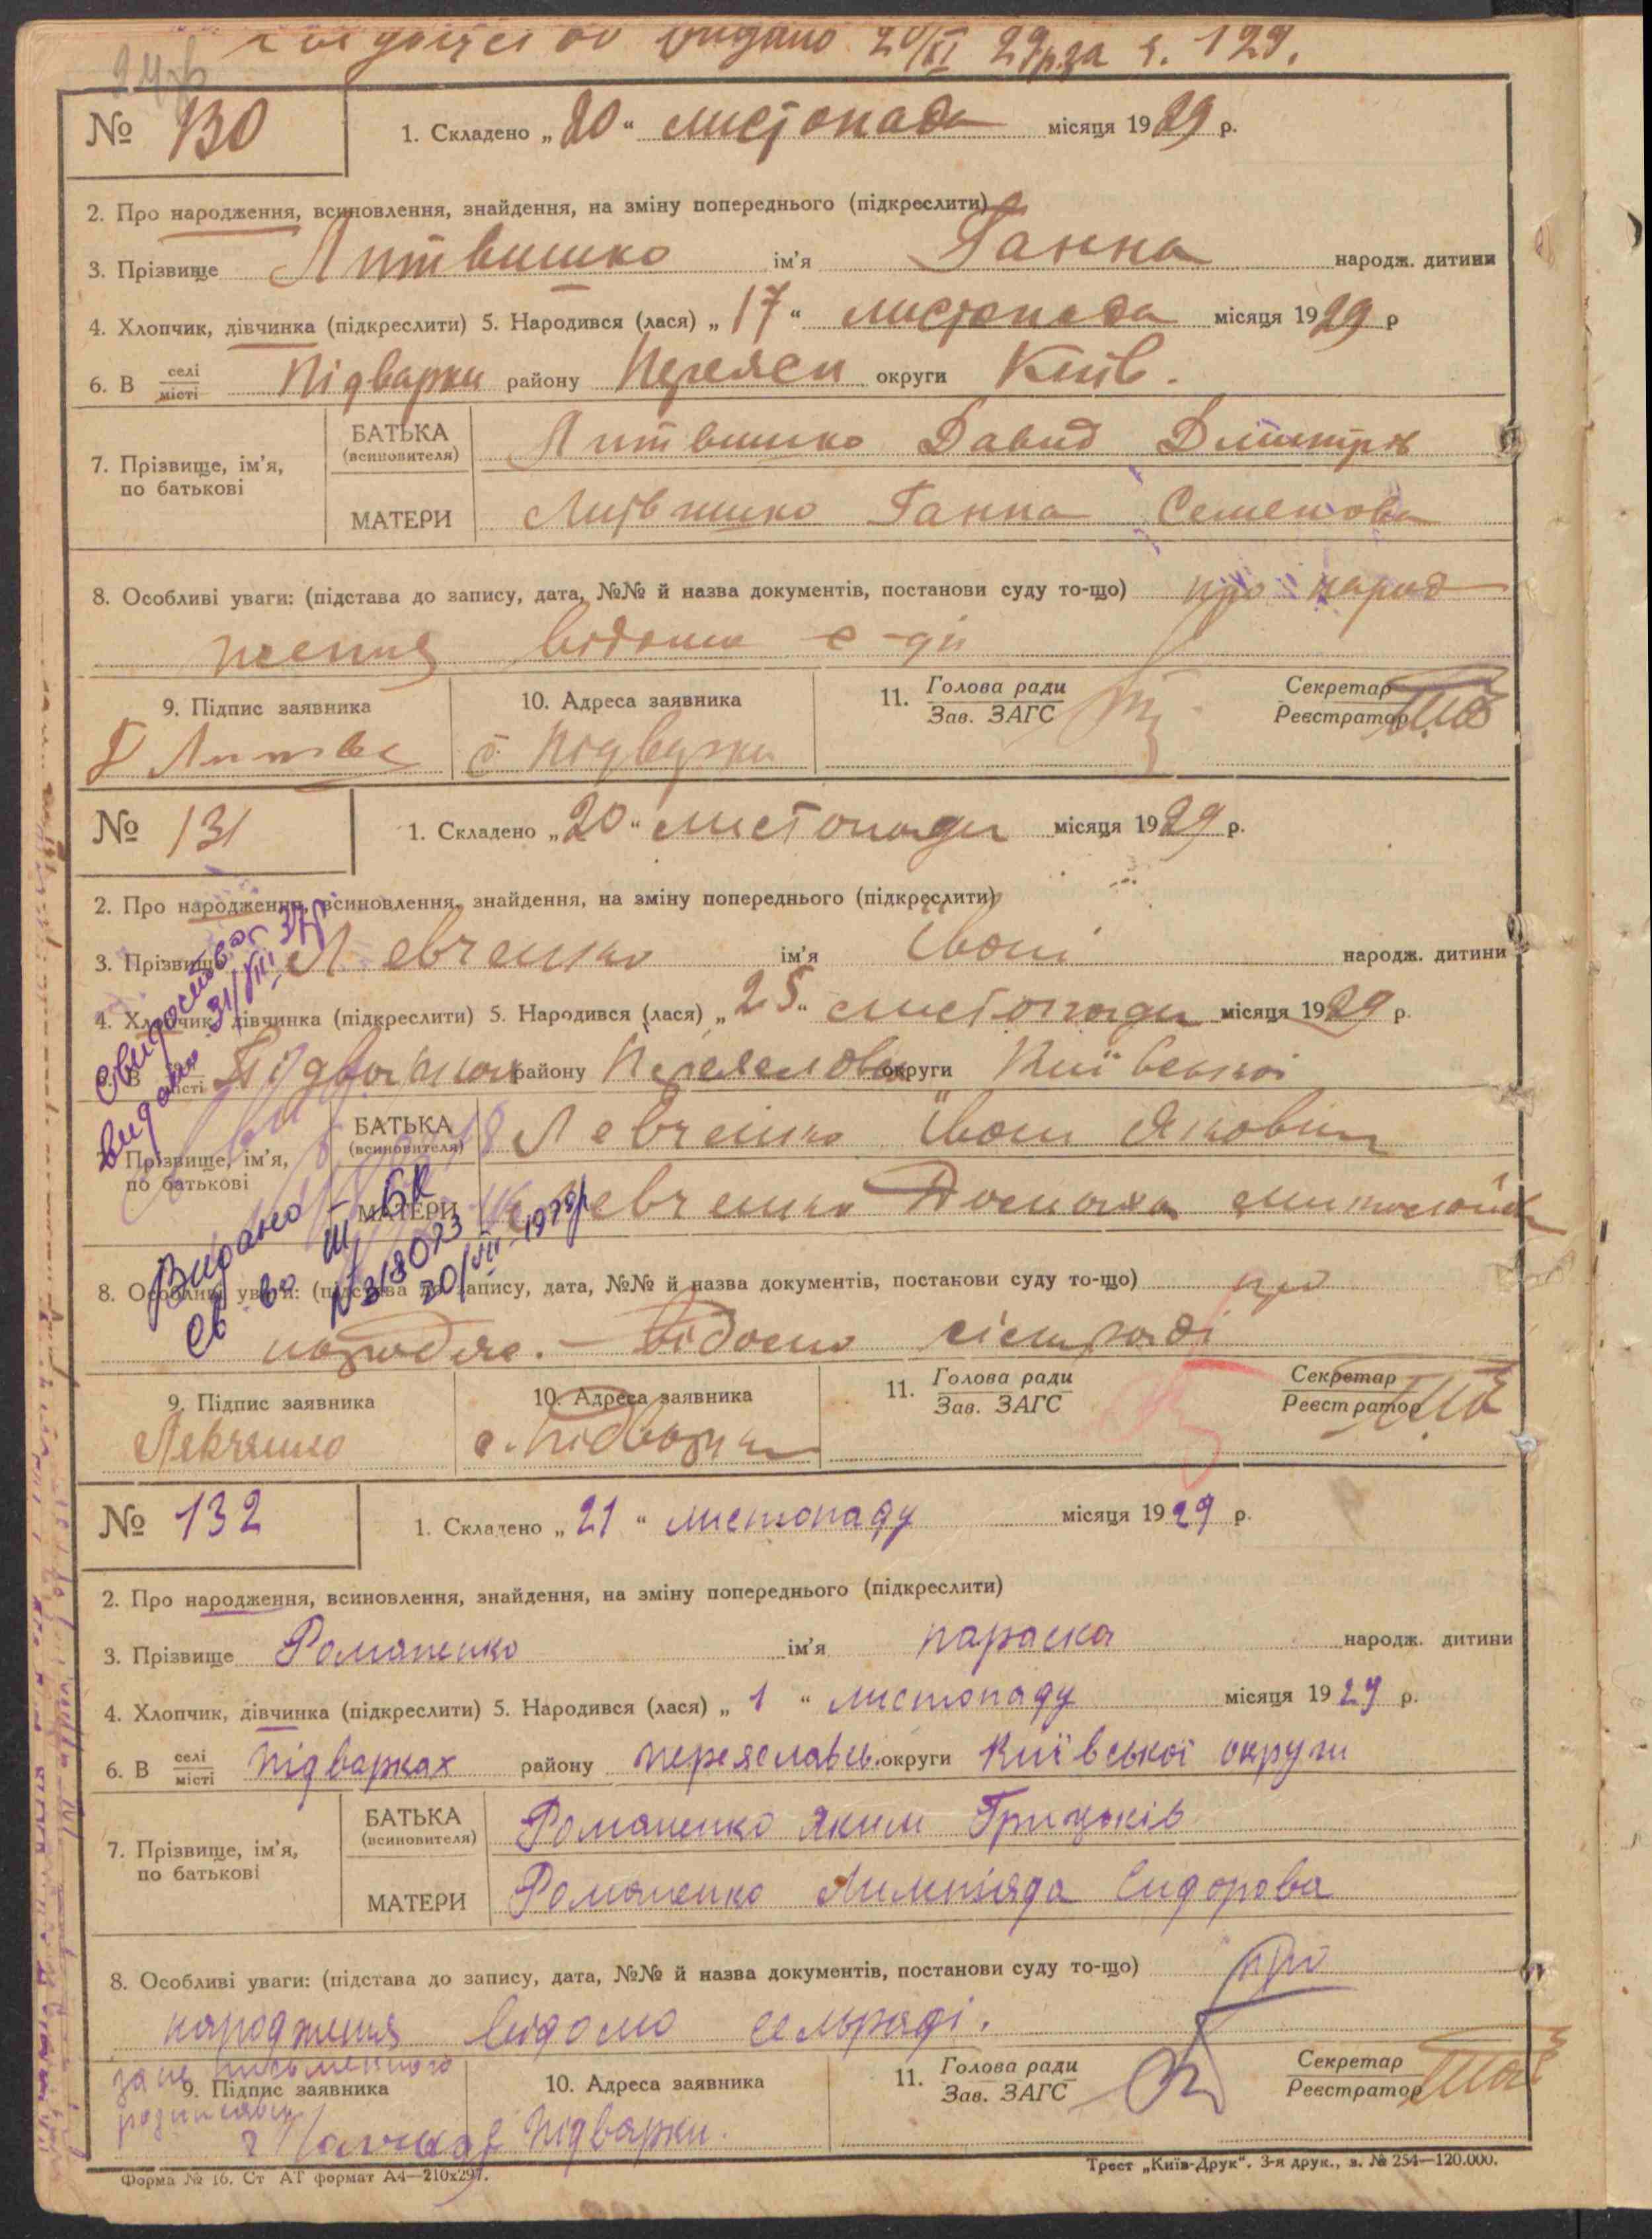 видано 20/XI 29р. за ч. 129.
№ 130
1. Складено „20“ листопада місяця 1929 р.
2. Про народження, всиновлення, знайдення, на зміну попереднього (підкреслити)
3. Прізвище Литвишко ім’я Ганна народж. дитини
4. Хлопчик, дівчинка (підкреслити) 5. Народився (лася) „17“ листопада місяця 1929 р
6. В селі місті Підварки району Переясл округи Київ.
7. Прізвище, ім’я, по батькові
БАТЬКА (всиновителя) Литвишко Давид Дмитрів
МАТЕРИ Литвишко Ганна Семенова
8. Особливі уваги: (підстава до запису, дата, №№ й назва документів, постанови суду то-що) про народ
ження відомо с-ді
9. Підпис заявника 10. Адреса заявника 11. Голова ради Зав. ЗАГС Секретар Реєстратор
с. Підварки
№ 131
1. Складено „20“ листопада місяця 1929 р.
2. Про народження, всиновлення, знайдення, на зміну попереднього (підкреслити)
3. Прізвище Левченко ім’я Іван народж. дитини
4. Хлопчик, дівчинка (підкреслити) 5. Народився (лася) „25“ листопада місяця 1929 р.
6. В селі місті Підварках району Переяславськ округи Київської
7. Прізвище, ім’я, по батькові
БАТЬКА (всиновителя) Левченко Іван Якович
МАТЕРИ Левченко Домаха
Свидоство видано 31/VIII 37р
Видано св во № 318073 20/VIII
8. Особливі уваги: (підстава до запису, дата, №№ й назва документів, постанови суду то-що) про
народже. - відомо сільраді
9. Підпис заявника 10. Адреса заявника 11. Голова ради Зав. ЗАГС Секретар Реєстратор
Левченко с. Підварки
№ 132
1. Складено „21“ листопаду місяця 1929 р.
2. Про народження, всиновлення, знайдення, на зміну попереднього (підкреслити)
3. Прізвище Романенко ім’я параска народж. дитини
4. Хлопчик, дівчинка (підкреслити) 5. Народився (лася) „1“ листопаду місяця 1929 р.
6. В селі місті Підварках району переяславсь. округи Київської округи
7. Прізвище, ім’я, по батькові
БАТЬКА (всиновителя) Романенко Яким Грицьків
МАТЕРИ Романенко Лимпіяда Сидорова
8. Особливі уваги: (підстава до запису, дата, №№ й назва документів, постанови суду то-що) про
народження відомо сельраді.
за не письменного
9. Підпис заявника 10. Адреса заявника 11. Голова ради Зав. ЗАГС Секретар Реєстратор
Підварки.
Форма № 16. Ст АТ формат А4—210х297.
Трест „Київ-Друк“. 3-я друк., з. № 254—120.000.